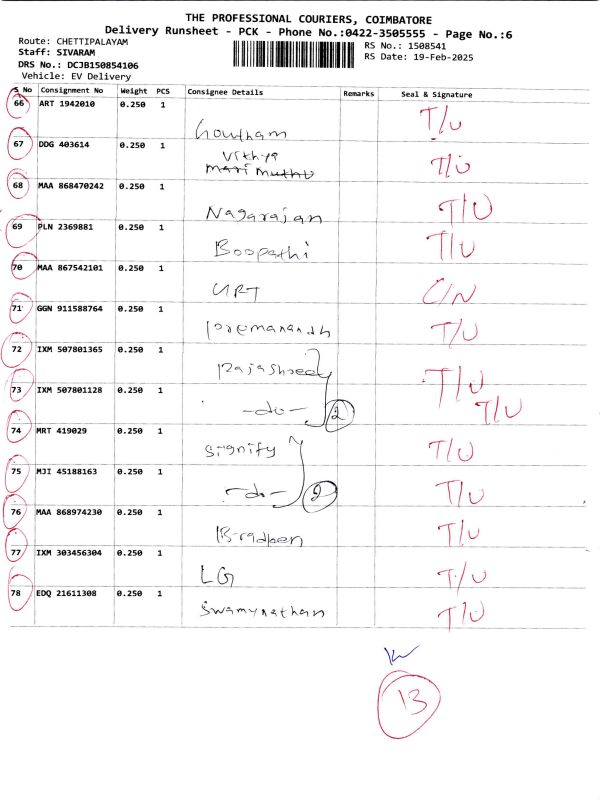 THE PROFESSIONAL COURIERS, COIMBATORE
Delivery Runsheet - PCK - Phone No.:0422-3505555 - Page No.:6
Route: CHETTIPALAYAM
RS No.: 1508541
Staff: SIVARAM
RS Date: 19-Feb-2025
DRS No.: DCJB150854106
Vehicle: EV Delivery
S No Consignment No Weight PCS Consignee Details Remarks Seal & Signature
66 ART 1942010 0.250 1 Goutham T/U
67 DDG 403614 0.250 1 Vithya T/U
mari muthu
68 MAA 868470242 0.250 1 Nagarajan T/U
69 PLN 2369881 0.250 1 Boopathi T/U
70 MAA 867542101 0.250 1 URT C/N
71 GGN 911588764 0.250 1 Premanandh T/U
72 IXM 507801365 0.250 1 Rajashreey T/U
73 IXM 507801128 0.250 1 -do- 2 T/U
74 MRT 419029 0.250 1 signify T/U
75 MJI 45188163 0.250 1 -do- 2 T/U
76 MAA 868974230 0.250 1 T/U
77 IXM 303456304 0.250 1 LG T/U
78 EDQ 21611308 0.250 1 Swamynathan T/U
13